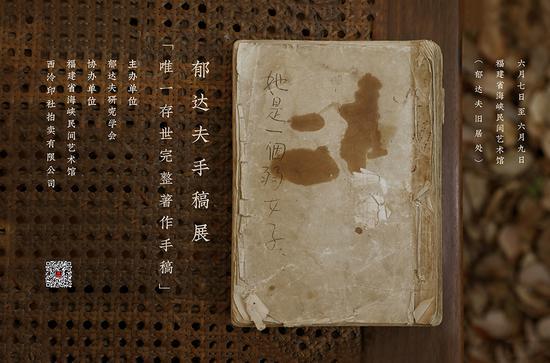 六月七日至六月九日
福建省海峡民间艺术馆
（郁达夫旧居处）
她是一個弱女子
郁达夫手稿展
「唯一存世完整著作手稿」
主办单位
郁达夫研究学会
协办单位
福建省海峡民间艺术馆
西泠印社拍卖有限公司